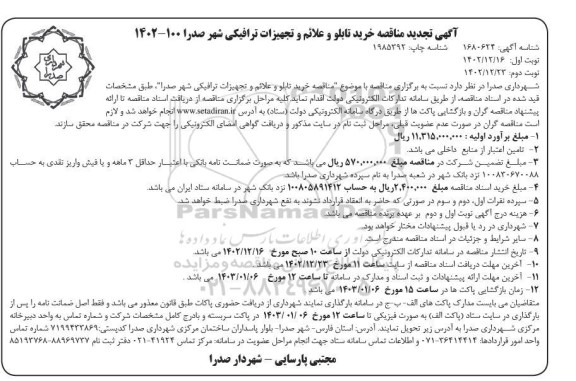 آگهی تجدید مناقصه خرید تابلو و علائم و تجهیزات ترافیکی شهر صدرا ۱۰۰-۱۴۰۲
شناسه آگهی: ۱۶۸۰۶۲۴ شناسه چاپ: ۱۹۸۵۳۹۲
نوبت اول: ۱۴۰۲/۱۲/۱۶
نوبت دوم: ۱۴۰۲/۱۲/۲۳
شهرداری صدرا در نظر دارد نسبت به برگزاری مناقصه با موضوع "مناقصه خرید تابلو و علائم و تجهیزات ترافیکی شهر صدرا"، طبق مشخصات
قید شده در اسناد مناقصه، از طریق سامانه تدارکات الکترونیکی دولت اقدام نماید. کلیه مراحل برگزاری مناقصه از دریافت اسناد مناقصه تا ارائه
پیشنهاد مناقصه گران و بازگشایی پاکت ها از طریق درگاه سامانه تدارکات الکترونیکی دولت (ستاد) به آدرس www.setadiran.ir انجام خواهد شد و لازم
است مناقصه گران در صورت عدم عضویت قبلی، مراحل ثبت نام در سایت مذکور و دریافت گواهی امضای الکترونیکی را جهت شرکت در مناقصه محقق سازند.
۱- مبلغ برآورد اولیه : ۱۱,۳۱۵,۰۰۰,۰۰۰ ریال
۲- تامین اعتبار از منابع داخلی می باشد.
۳- مبلغ تضمین شرکت در مناقصه مبلغ ۵۷۰,۰۰۰,۰۰۰ ریال می باشد که به صورت ضمانت نامه بانکی با اعتبار حداقل ۳ ماهه و یا فیش واریز نقدی به حساب
۱۰۰۸۲۰۶۷۰۰۸۸ نزد بانک شهر در شعبه صدرا به نام سپرده شهرداری صدرا باشد.
۴- مبلغ خرید اسناد مناقصه مبلغ ۲,۴۰۰,۰۰۰ ریال به حساب ۱۰۰۸۰۵۸۹۱۴۱۲ نزد بانک شهر در سامانه ستاد ایران می باشد.
۵- سپرده نفرات اول، دوم و سوم در صورتی که حاضر به انعقاد قرارداد نشوند به نفع شهرداری صدرا ضبط خواهد شد.
۶- هزینه درج آگهی نوبت اول و دوم بر عهده برنده مناقصه می باشد.
۷- شهرداری در رد یا قبول پیشنهادات مختار خواهد بود.
۸- سایر شرایط و جزئیات در اسناد مناقصه مندرج است.
۹- تاریخ انتشار مناقصه در سامانه تدارکات الکترونیکی دولت از ساعت ۱۰ صبح مورخ ۱۴۰۲/۱۲/۱۶ می باشد.
۱۰- آخرین مهلت دریافت اسناد مناقصه از سایت ساعت ۱۱ مورخ ۱۴۰۲/۱۲/۲۳ می باشد.
۱۱- آخرین مهلت ارائه پیشنهادات و ثبت اسناد و مدارک در سامانه تا ساعت ۱۲ مورخ ۱۴۰۳/۰۱/۰۶ می باشد.
۱۲- زمان بازگشایی پاکت ها در ساعت ۱۵ مورخ ۱۴۰۳/۰۱/۰۶ می باشد.
متقاضیان می بایست مدارک پاکت های الف- ب-ج در سامانه بارگذاری نمایند شهرداری از دریافت حضوری پاکات طبق قانون معذور می باشد و فقط اصل ضمانت نامه را پس از
بارگذاری در سایت ستاد (پاکت الف) به صورت فیزیکی تا ساعت ۱۲ مورخ ۱۴۰۳/۰۱/۰۶ در پاکت سربسته و بادرج کامل مشخصات شرکت و شماره تماس به واحد دبیرخانه
مرکزی شهرداری صدرا به آدرس زیر تحویل نمایند. آدرس: استان فارس- شهر صدرا- بلوار پاسداران ساختمان مرکزی شهرداری صدرا کدپستی: ۷۱۹۹۴۳۳۸۶۹ شماره تماس
واحد امور قراردادها: ۳۶۴۱۴۴۱۴-۰۷۱ و اطلاعات تماس سامانه ستاد جهت انجام مراحل عضویت در سامانه: مرکز تماس ۴۱۹۳۴-۰۲۱ دفتر ثبت نام ۸۸۹۶۹۷۳۷-۸۵۱۹۳۷۶۸
مجتبی پارسایی - شهردار صدرا